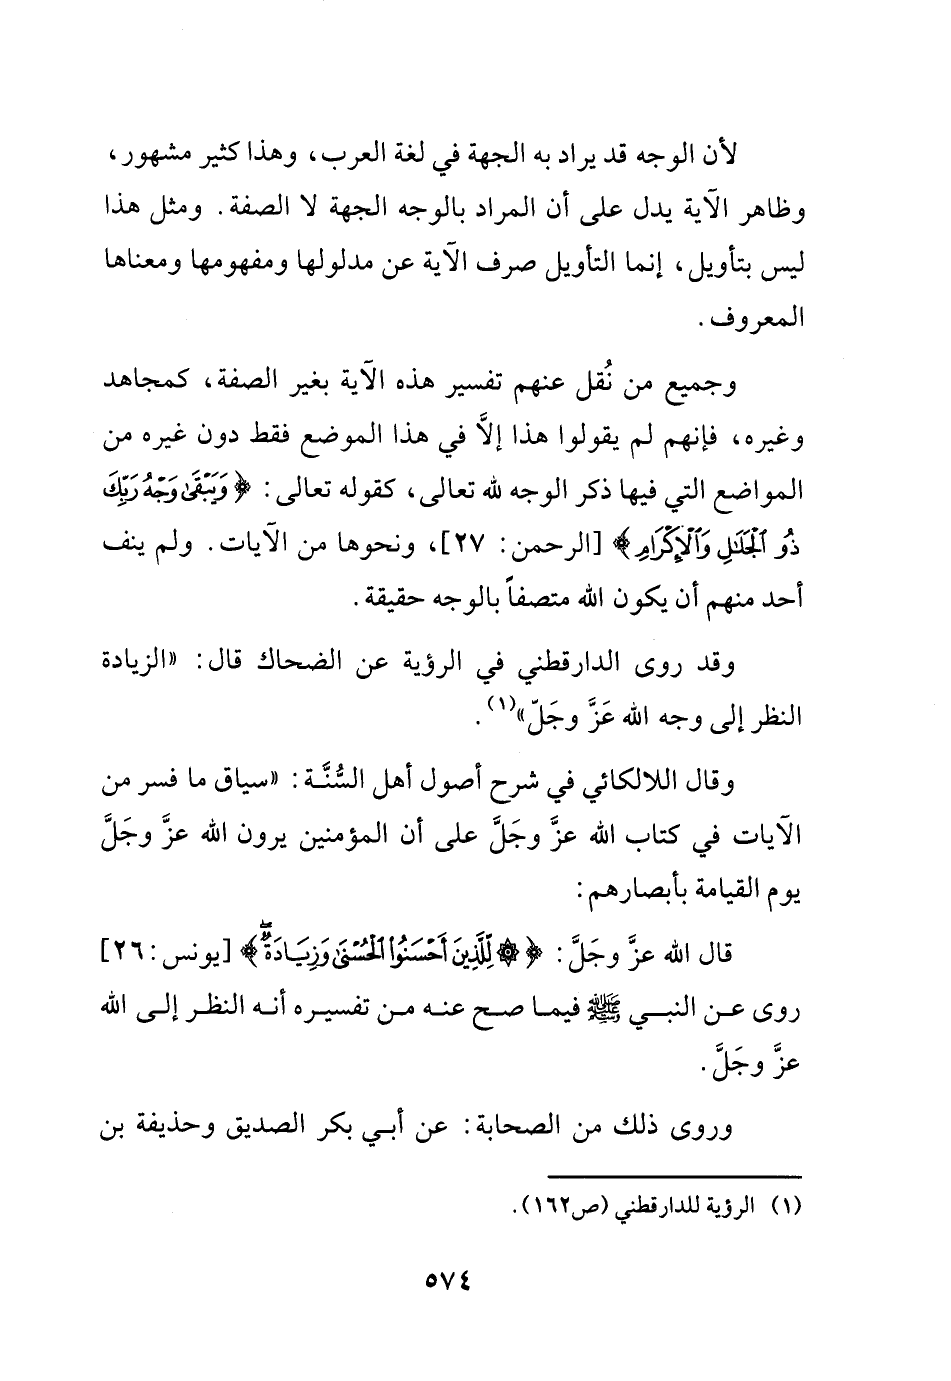 لأن الوجه قد يراد به الجهة في لغة العرب، وهذا كثير مشهور،
وظاهر الآية يدل على أن المراد بالوجه الجهة لا الصفة. ومثل هذا
ليس بتأويل، إنما التأويل صرف الآية عن مدلولها ومفهومها ومعناها
المعروف.
وجميع من نُقل عنهم تفسير هذه الآية بغير الصفة، كمجاهد
وغيره، فإنهم لم يقولوا هذا إلاَّ في هذا الموضع فقط دون غيره من
المواضع التي فيها ذكر الوجه لله تعالى، كقوله تعالى: ﴿وَيَبْقَىٰ وَجْهُ رَبِّكَ
ذُو ٱلْجَلَٰلِ وَٱلْإِكْرَامِ﴾ [الرحمن: ٢٧]، ونحوها من الآيات. ولم ينف
أحد منهم أن يكون الله متصفاً بالوجه حقيقة.
وقد روى الدارقطني في الرؤية عن الضحاك قال: «الزيادة
النظر إلى وجه الله عَزَّ وجَلّ»(١).
وقال اللالكائي في شرح أصول أهل السُّنَّة: «سياق ما فسر من
الآيات في كتاب الله عزَّ وجَلَّ على أن المؤمنين يرون الله عزَّ وجَلَّ
يوم القيامة بأبصارهم:
قال الله عزَّ وجَلَّ: ﴿۞ لِّلَّذِينَ أَحْسَنُوا۟ ٱلْحُسْنَىٰ وَزِيَادَةٌ ۖ﴾ [يونس: ٢٦]
روى عن النبي ﷺ فيما صح عنه من تفسيره أنه النظر إلى الله
عزَّ وجَلَّ.
وروى ذلك من الصحابة: عن أبي بكر الصديق وحذيفة بن
(١) الرؤية للدارقطني (ص١٦٢).
٥٧٤